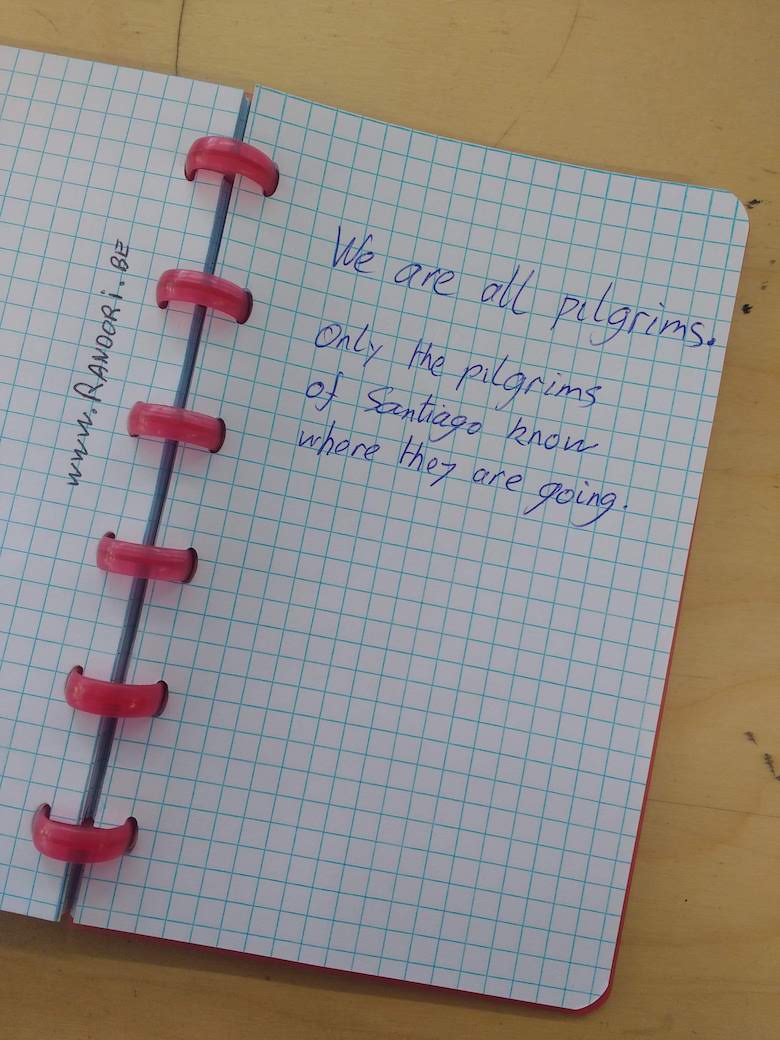 www.RANDORI.BE
We are all pilgrims.
Only the pilgrims
of Santiago know
where they are going.